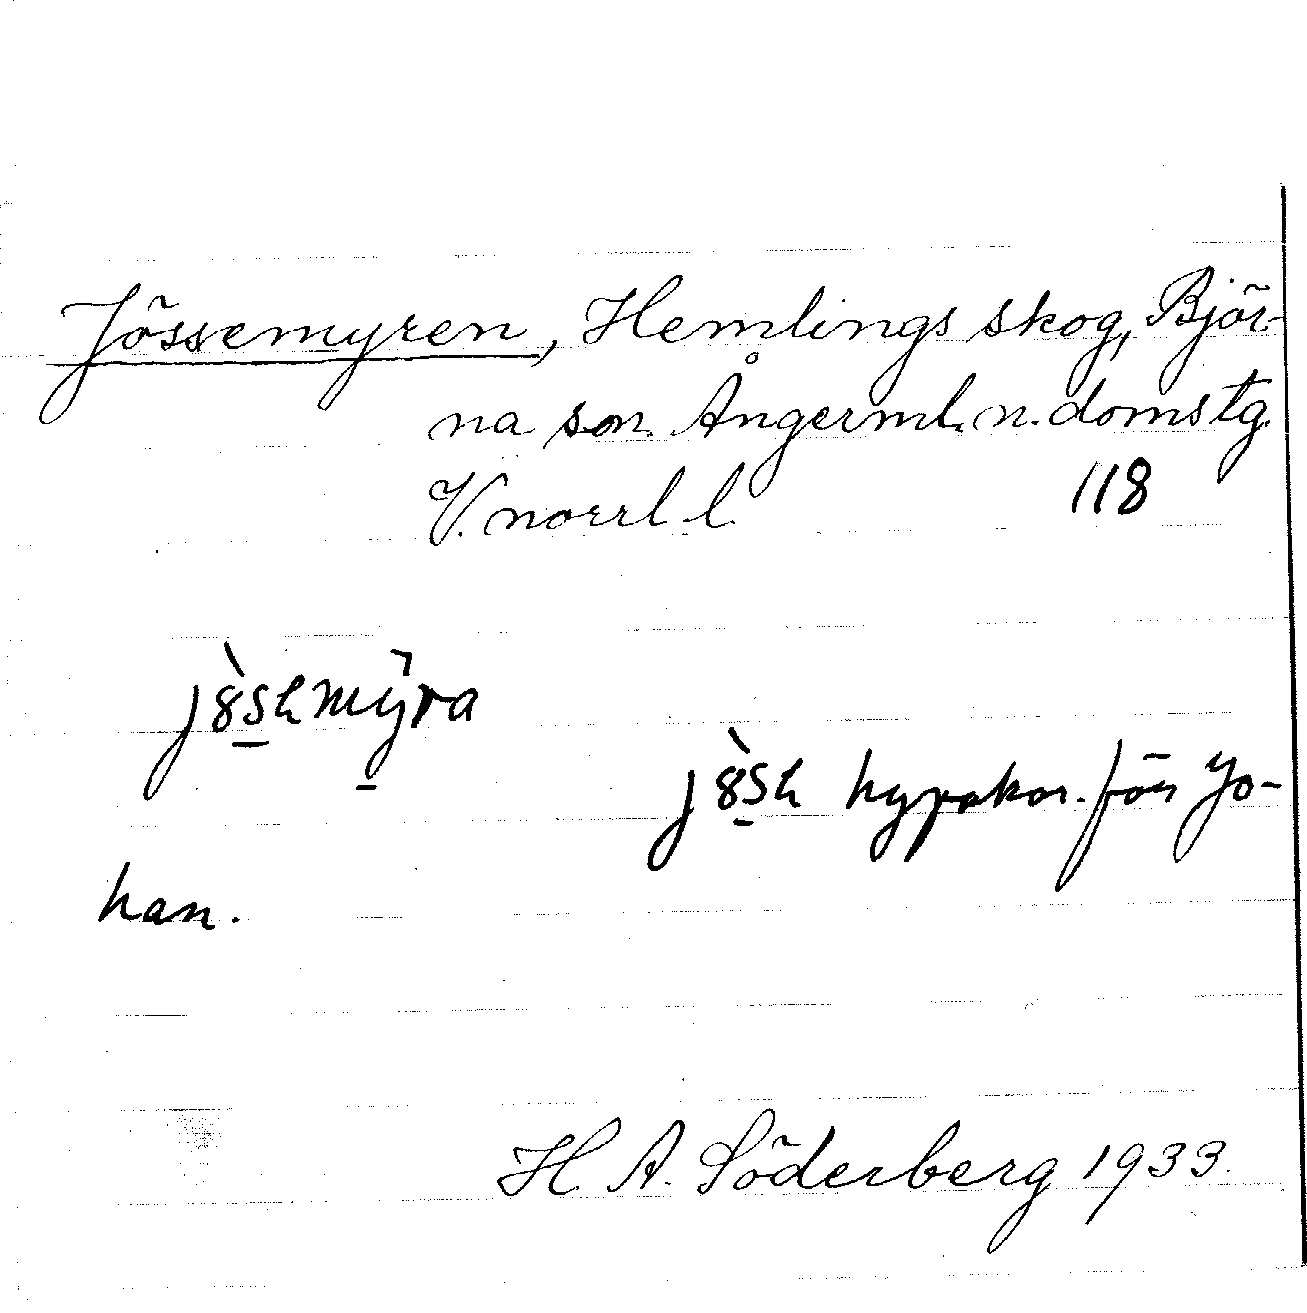 Jössemyren, Hemlings skog, Björ-
na sn. Ångerml. n. domstg.
V. norrl. l.
118
j8̀sɦmýra
j8̀sɦ hypokor. för Jo-
han.
H. A. Söderberg 1933.